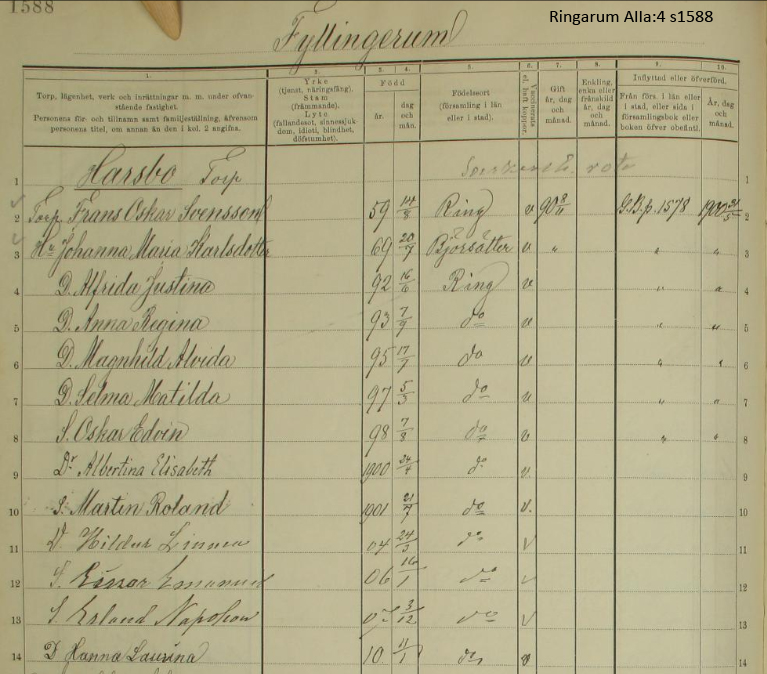 1588
Ringarum Alla:4 s1588
Fyllingerum
1. 2. 3. 4. 5. 6. 7. 8. 9. 10.
Torp, lägenhet, verk och inrättningar m. m. under ofvanstående fastighet.
Personens för- och tillnamn samt familjeställning, äfvensom personens titel, om annan än den i kol. 2 angifna.
Yrke
(tjenst, näringsfång).
Stam
(främmande).
Lyte
(fallandesot, sinnessjukdom, idioti, blindhet, döfstumhet).
Född
år.
dag och mån.
Födelseort
(församling i län eller i stad).
Vaccinerats el. haft koppor.
Gift år, dag och månad.
Enkling, enka eller frånskild år, dag och månad.
Inflyttad eller öfverförd.
Från förs. i län eller i stad, eller sida i församlingsbok eller boken öfver obefintl.
År, dag och månad.
1 Harsbo Torp rote 1
2 Torp. Frans Oskar Svensson 59 14/8 Ring v 90 G.B.p. 1578 1900 2
3 Hu Johanna Maria Karlsdotter 69 20/7 Björsäter v " " " 3
4 D. Alfrida Justina 92 16/6 Ring v " " 4
5 D. Anna Regina 93 7/9 do v " " 5
6 D. Magnhild Alvida 95 17/7 do v " " 6
7 D. Selma Matilda 97 5/3 do v " " 7
8 S. Oskar Edvin 98 7/8 do v " " 8
9 Dr Albertina Elisabeth 1900 24/4 do v 9
10 S. Martin Roland 1901 21/7 do v. 10
11 D. Hildur Linnea 04 24/3 do v 11
12 S. Einar Emanuel 06 16/1 do v 12
13 S. Erland Napoleon 07 3/12 do v 13
14 D Hanna Laurina 10 11/1 do v 14